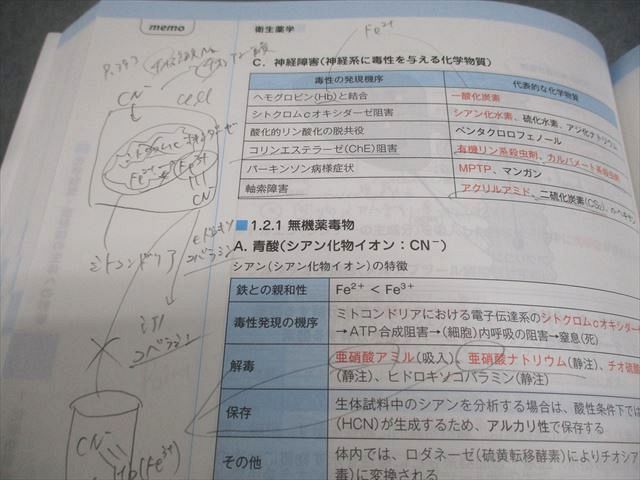 memo
衛生薬学
Fe²⁺
P.393
CN⁻
Cell
シトクロムcオキシダーゼ
Fe²⁺ → Fe³⁺
CN⁻
ミトコンドリア
ヒドロキソ
コバラミン
シアノ
コバラミン
CN⁻
Hb(Fe³⁺)
C. 神経障害(神経系に毒性を与える化学物質)
毒性の発現機序 代表的な化学物質
ヘモグロビン(Hb)と結合 一酸化炭素
シトクロムcオキシダーゼ阻害 シアン化水素、硫化水素、アジ化ナトリウム
酸化的リン酸化の脱共役 ペンタクロロフェノール
コリンエステラーゼ(ChE)阻害 有機リン系殺虫剤、カルバメート系殺虫剤
パーキンソン病様症状 MPTP、マンガン
軸索障害 アクリルアミド、二硫化炭素(CS₂)、n-ヘキサン
1.2.1 無機薬毒物
A. 青酸(シアン化物イオン:CN⁻)
シアン(シアン化物イオン)の特徴
鉄との親和性 Fe²⁺ < Fe³⁺
毒性発現の機序 ミトコンドリアにおける電子伝達系のシトクロムcオキシダー
→ATP合成阻害→(細胞)内呼吸の阻害→窒息(死)
解毒 亜硝酸アミル(吸入)、亜硝酸ナトリウム(静注)、チオ硫酸
(静注)、ヒドロキソコバラミン(静注)
保存 生体試料中のシアンを分析する場合は、酸性条件下では
(HCN)が生成するため、アルカリ性で保存する
その他 体内では、ロダネーゼ(硫黄転移酵素)によりチオシア
毒)に変換される